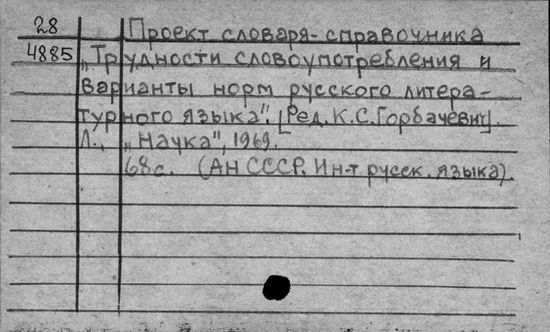 28 Проект словаря-справочника
4885 „Трудности словоупотребления и
варианты норм русского литера-
турного языка". [Ред. К.С.Горбачевич].
Л., „Наука", 1969.
68с. (АН СССР. Ин-т русск. языка).